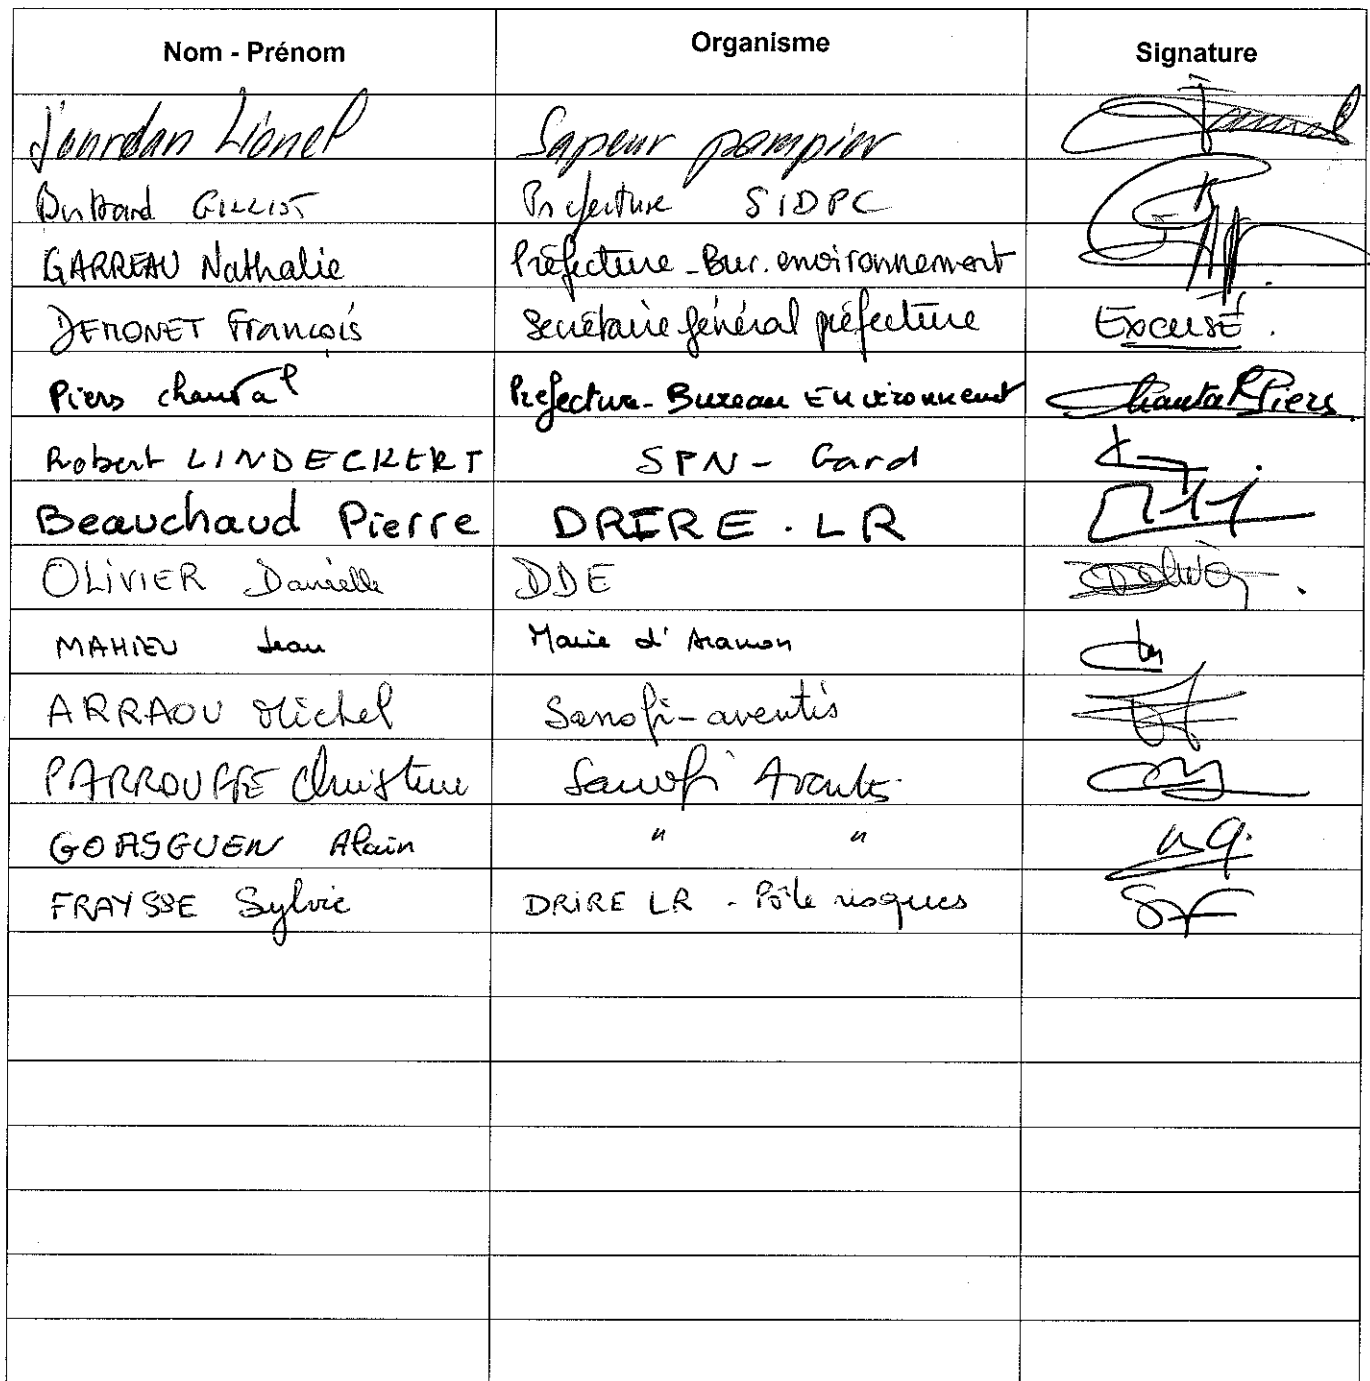 Nom - Prénom Organisme Signature
Jourdan Lionel Sapeur pompier
Bertrand GILLIOT Préfecture SIDPC
GARREAU Nathalie Préfecture - Bur. environnement
DEMONET François Secrétaire général préfecture Excusé.
Piers chantal Prefecture - Bureau Environnement Chantal Piers
Robert LINDECKERT SPN - Gard
Beauchaud Pierre DRIRE . LR
OLIVIER Danielle DDE
MAHIEU Jean Mairie d'Aramon
ARRAOU Michel Sanofi-aventis
PARROUFFE Christine Sanofi Aventis
GOASGUEN Alain " "
FRAYSSE Sylvie DRIRE LR - Pôle risques